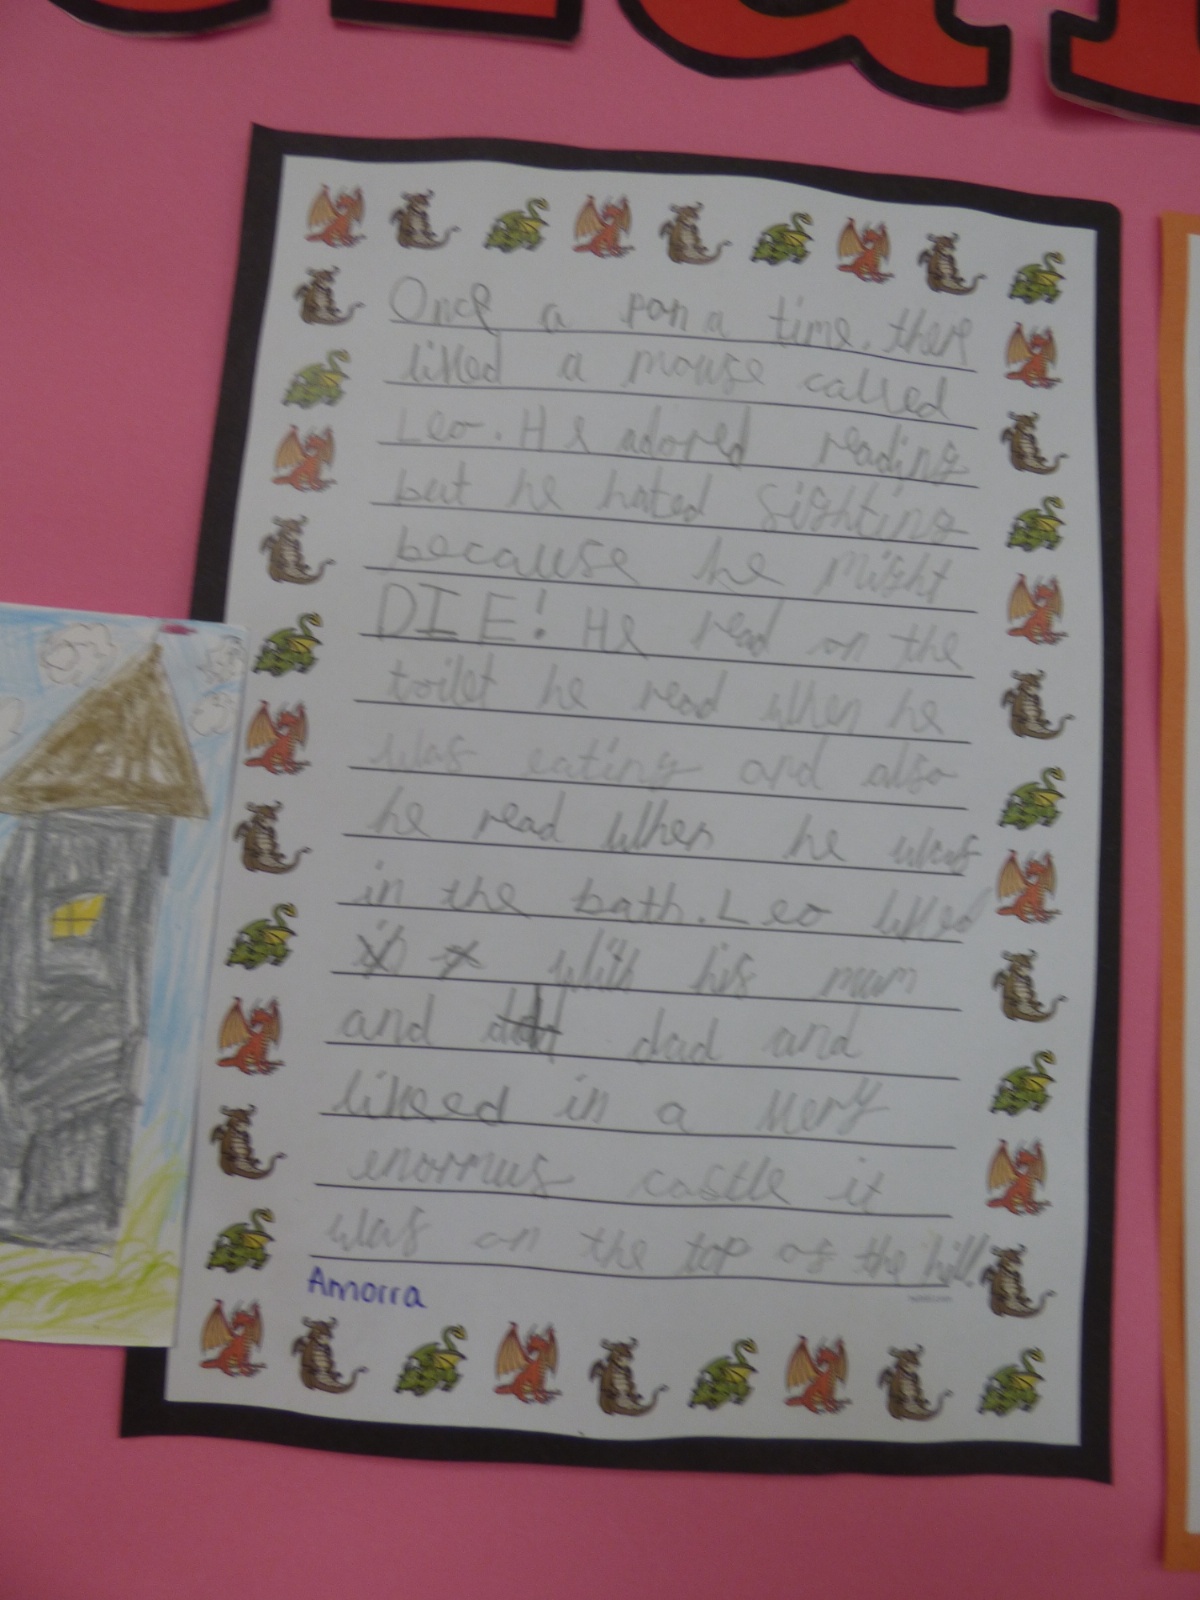 Once a pon a time. there
lived a mouse called
Leo. He adored reading
but he hated fighting
because he might
DIE! He read on the
toilet he read when he
was eating and also
he read when he was
in the bath. Leo lived
with his mum
and dad and
liveed in a very
enormus castle it
was on the top of the hill.
Amorra